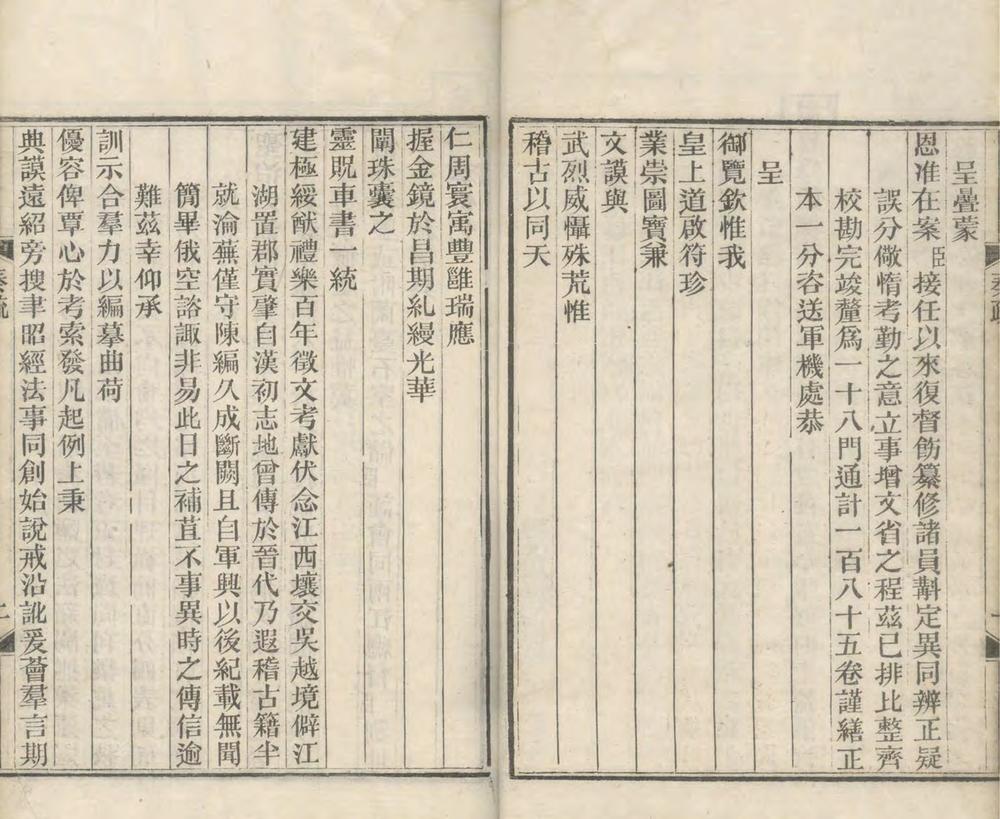 呈疊蒙
恩准在案臣接任以來復督飭纂修諸員斠定異同辨正疑
誤分儆惰考勤之意立事增文省之程茲已排比整齊
校勘完竣釐爲一十八門通計一百八十五卷謹繕正
本一分咨送軍機處恭
呈
御覽欽惟我
皇上道啟符珍
業崇圖寶兼
文謨與
武烈威懾殊荒惟
稽古以同天
仁周寰寓豐雝瑞應
握金鏡於昌期糺縵光華
闡珠囊之
靈貺車書一統
建極綏猷禮樂百年徵文考獻伏念江西壤交吳越境僻江
湖置郡實肇自漢初志地曾傳於晉代乃遐稽古籍半
就淪蕪僅守陳編久成斷闕且自軍興以後紀載無聞
簡畢俄空諮諏非易此日之補苴不事異時之傳信逾
難茲幸仰承
訓示合羣力以編摹曲荷
優容俾覃心於考索發凡起例上秉
典謨遠紹旁搜聿昭經法事同創始說戒沿訛爰薈羣言期